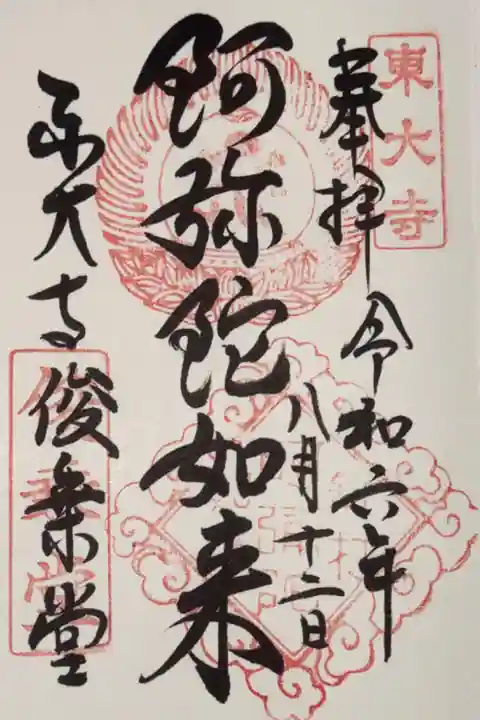 東大寺
奉拝
令和六年
八月十二日
阿弥陀如来
東大寺
俊乗堂
俊乗堂